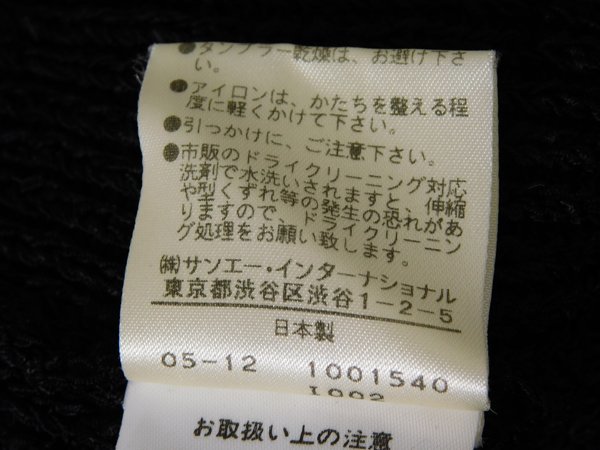 ●タンブラー乾燥は、お避け下さ
い。
●アイロンは、かたちを整える程
度に軽くかけて下さい。
●引っかけに、ご注意下さい。
●市販のドライクリーニング対応
洗剤で水洗いされますと、伸縮
や型くずれ等の発生の恐れがあ
りますので、ドライクリーニン
グ処理をお願い致します。
㈱サンエー・インターナショナル
東京都渋谷区渋谷1-2-5
日本製
05-12 1001540
お取扱い上の注意